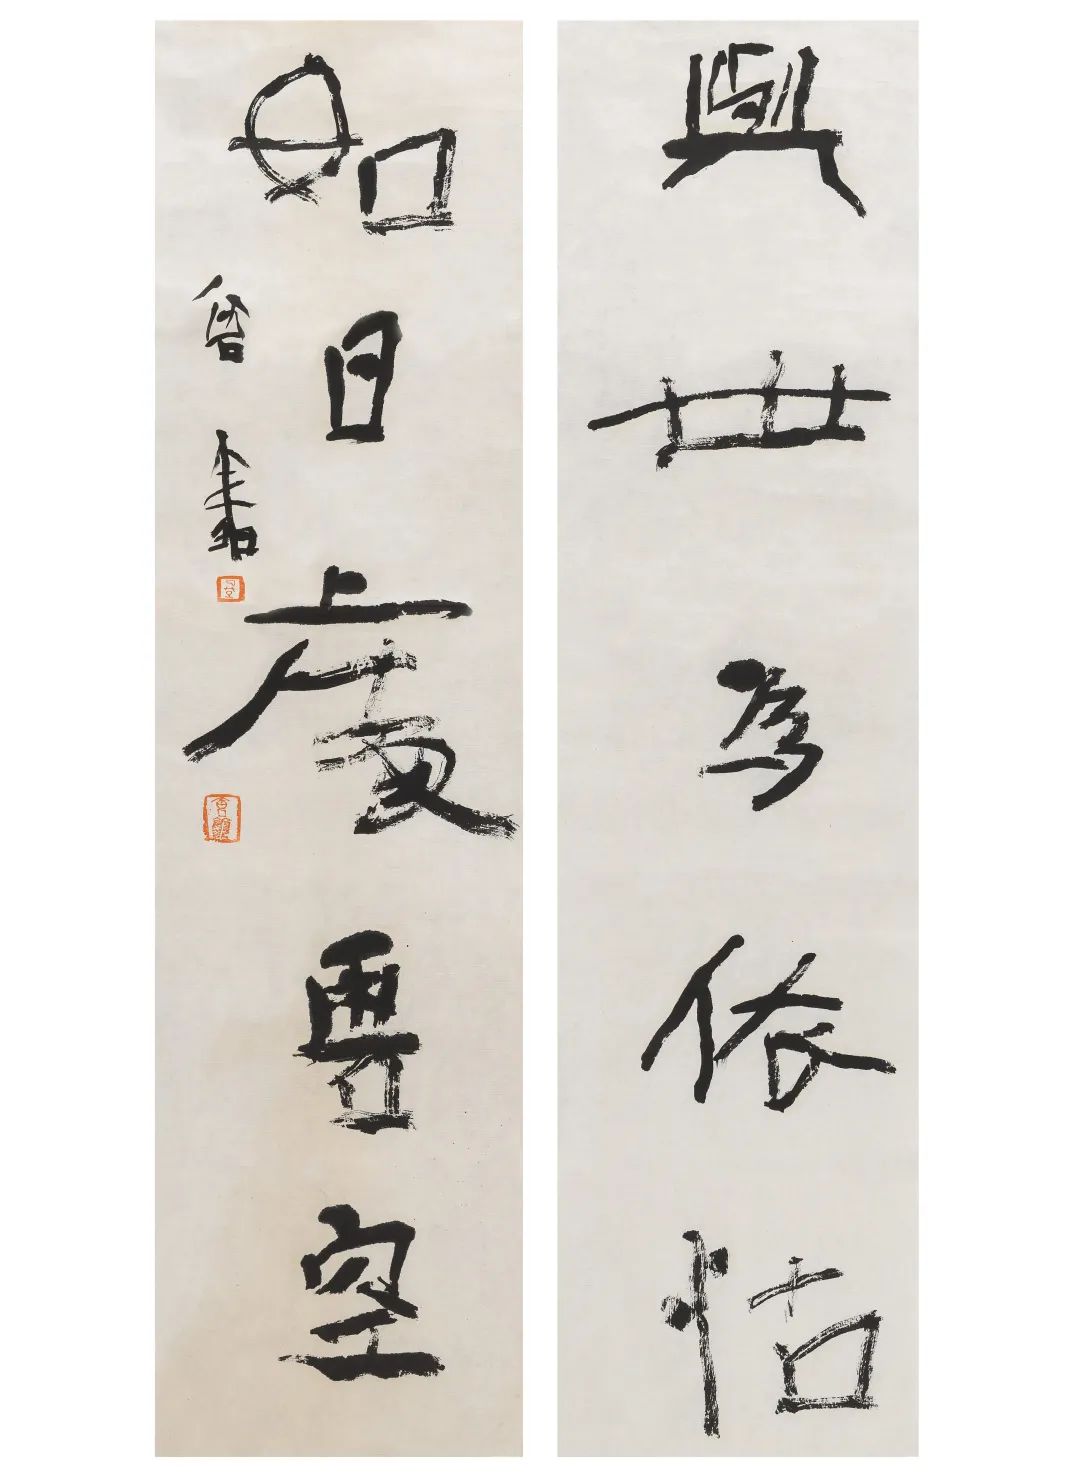 與世為依怙
如日處虛空
曾書